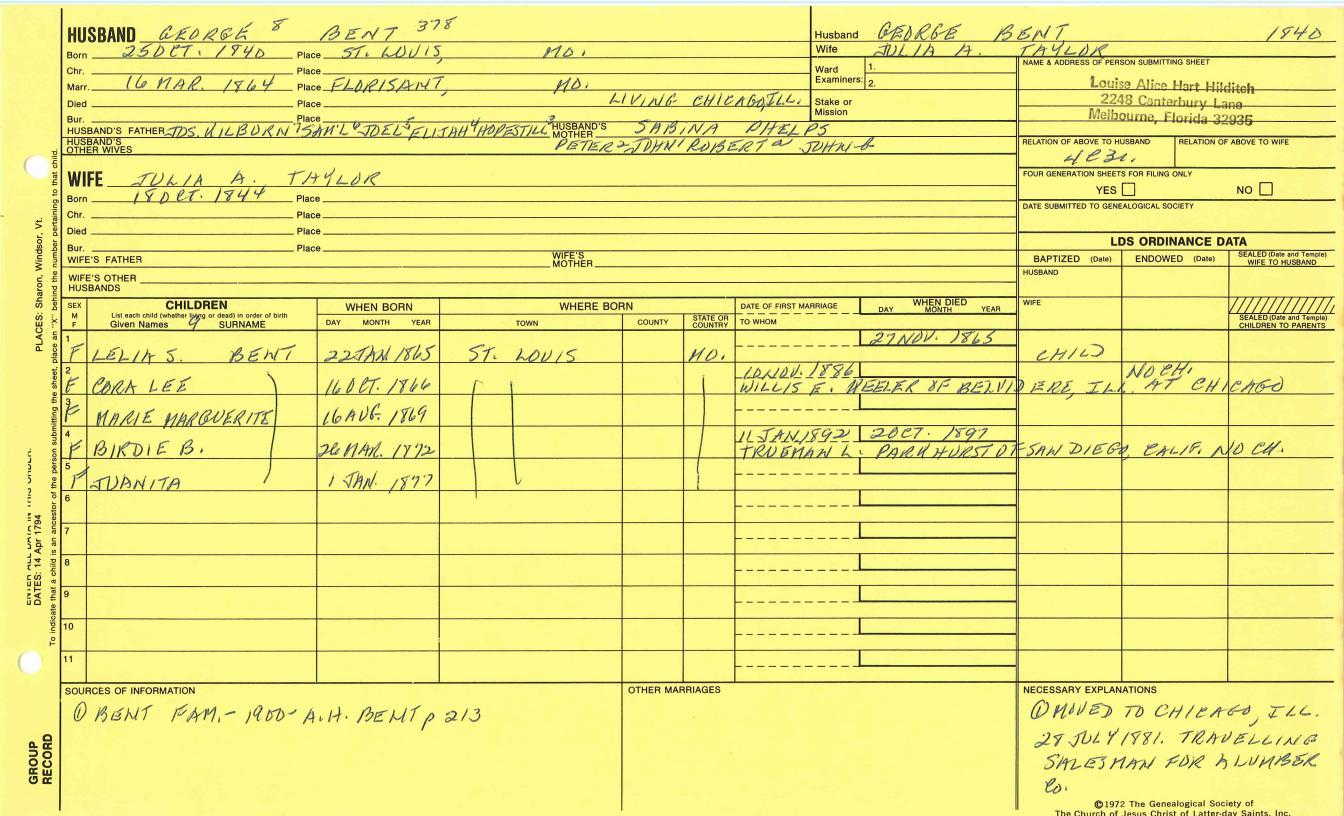 HUSBAND GEORGE 8 BENT 378
Born 25 OCT. 1840 Place ST. LOUIS, MO.
Chr. Place
Marr. 16 MAR. 1864 Place FLORISANT, MO.
Died Place LIVING CHICAGO, ILL.
Bur. Place
HUSBAND'S FATHER JOS. WILBURN 7 SAM'L 6 JOEL 5 ELIJAH 4 HOPESTILL 3 HUSBAND'S MOTHER SABINA PHELPS
HUSBAND'S OTHER WIVES PETER 2 JOHN 1 ROBERT a JOHN b
WIFE JULIA A. TAYLOR
Born 18 OCT. 1844 Place
Chr. Place
Died Place
Bur. Place
WIFE'S FATHER WIFE'S MOTHER
WIFE'S OTHER HUSBANDS
Husband GEORGE BENT 1840
Wife JULIA A. TAYLOR
Ward Examiners: 1. 2.
Stake or Mission
NAME & ADDRESS OF PERSON SUBMITTING SHEET
Louise Alice Hart Hilditch
2248 Canterbury Lane
Melbourne, Florida 32935
RELATION OF ABOVE TO HUSBAND RELATION OF ABOVE TO WIFE
4C3r.
FOUR GENERATION SHEETS FOR FILING ONLY
YES NO
DATE SUBMITTED TO GENEALOGICAL SOCIETY
LDS ORDINANCE DATA
BAPTIZED (Date) ENDOWED (Date) SEALED (Date and Temple) WIFE TO HUSBAND
HUSBAND
WIFE
SEALED (Date and Temple) CHILDREN TO PARENTS
SEX M F
CHILDREN
List each child (whether living or dead) in order of birth
Given Names 9 SURNAME
WHEN BORN
DAY MONTH YEAR
WHERE BORN
TOWN COUNTY STATE OR COUNTRY
DATE OF FIRST MARRIAGE
TO WHOM
WHEN DIED
DAY MONTH YEAR
1 F LELIA S. BENT 22 JAN 1865 ST. LOUIS MO. 27 NOV. 1865 CHILD
2 F CORA LEE 16 OCT. 1866 10 NOV. 1886 NO CH.
WILLIS E. NEELER OF BELVIDERE, ILL. AT CHICAGO
3 F MARIE MARGUERITE 16 AUG. 1869
4 F BIRDIE B. 26 MAR. 1872 11 JAN 1892 2 OCT. 1897
TRUEMAN L. PARKHURST OF SAN DIEGO, CALIF. NO CH.
5 F JUANITA 1 JAN. 1877
6
7
8
9
10
11
SOURCES OF INFORMATION
① BENT FAM. - 1900 - A.H. BENT p 213
OTHER MARRIAGES
NECESSARY EXPLANATIONS
① MOVED TO CHICAGO, ILL.
28 JULY 1881. TRAVELLING
SALESMAN FOR A LUMBER
Co.
©1972 The Genealogical Society of
The Church of Jesus Christ of Latter-day Saints, Inc.
PLACES: Sharon, Windsor, Vt.
DATES: 14 Apr 1794
To indicate that a child is an ancestor of the person submitting the sheet, place an "X" behind the number pertaining to that child.
GROUP RECORD